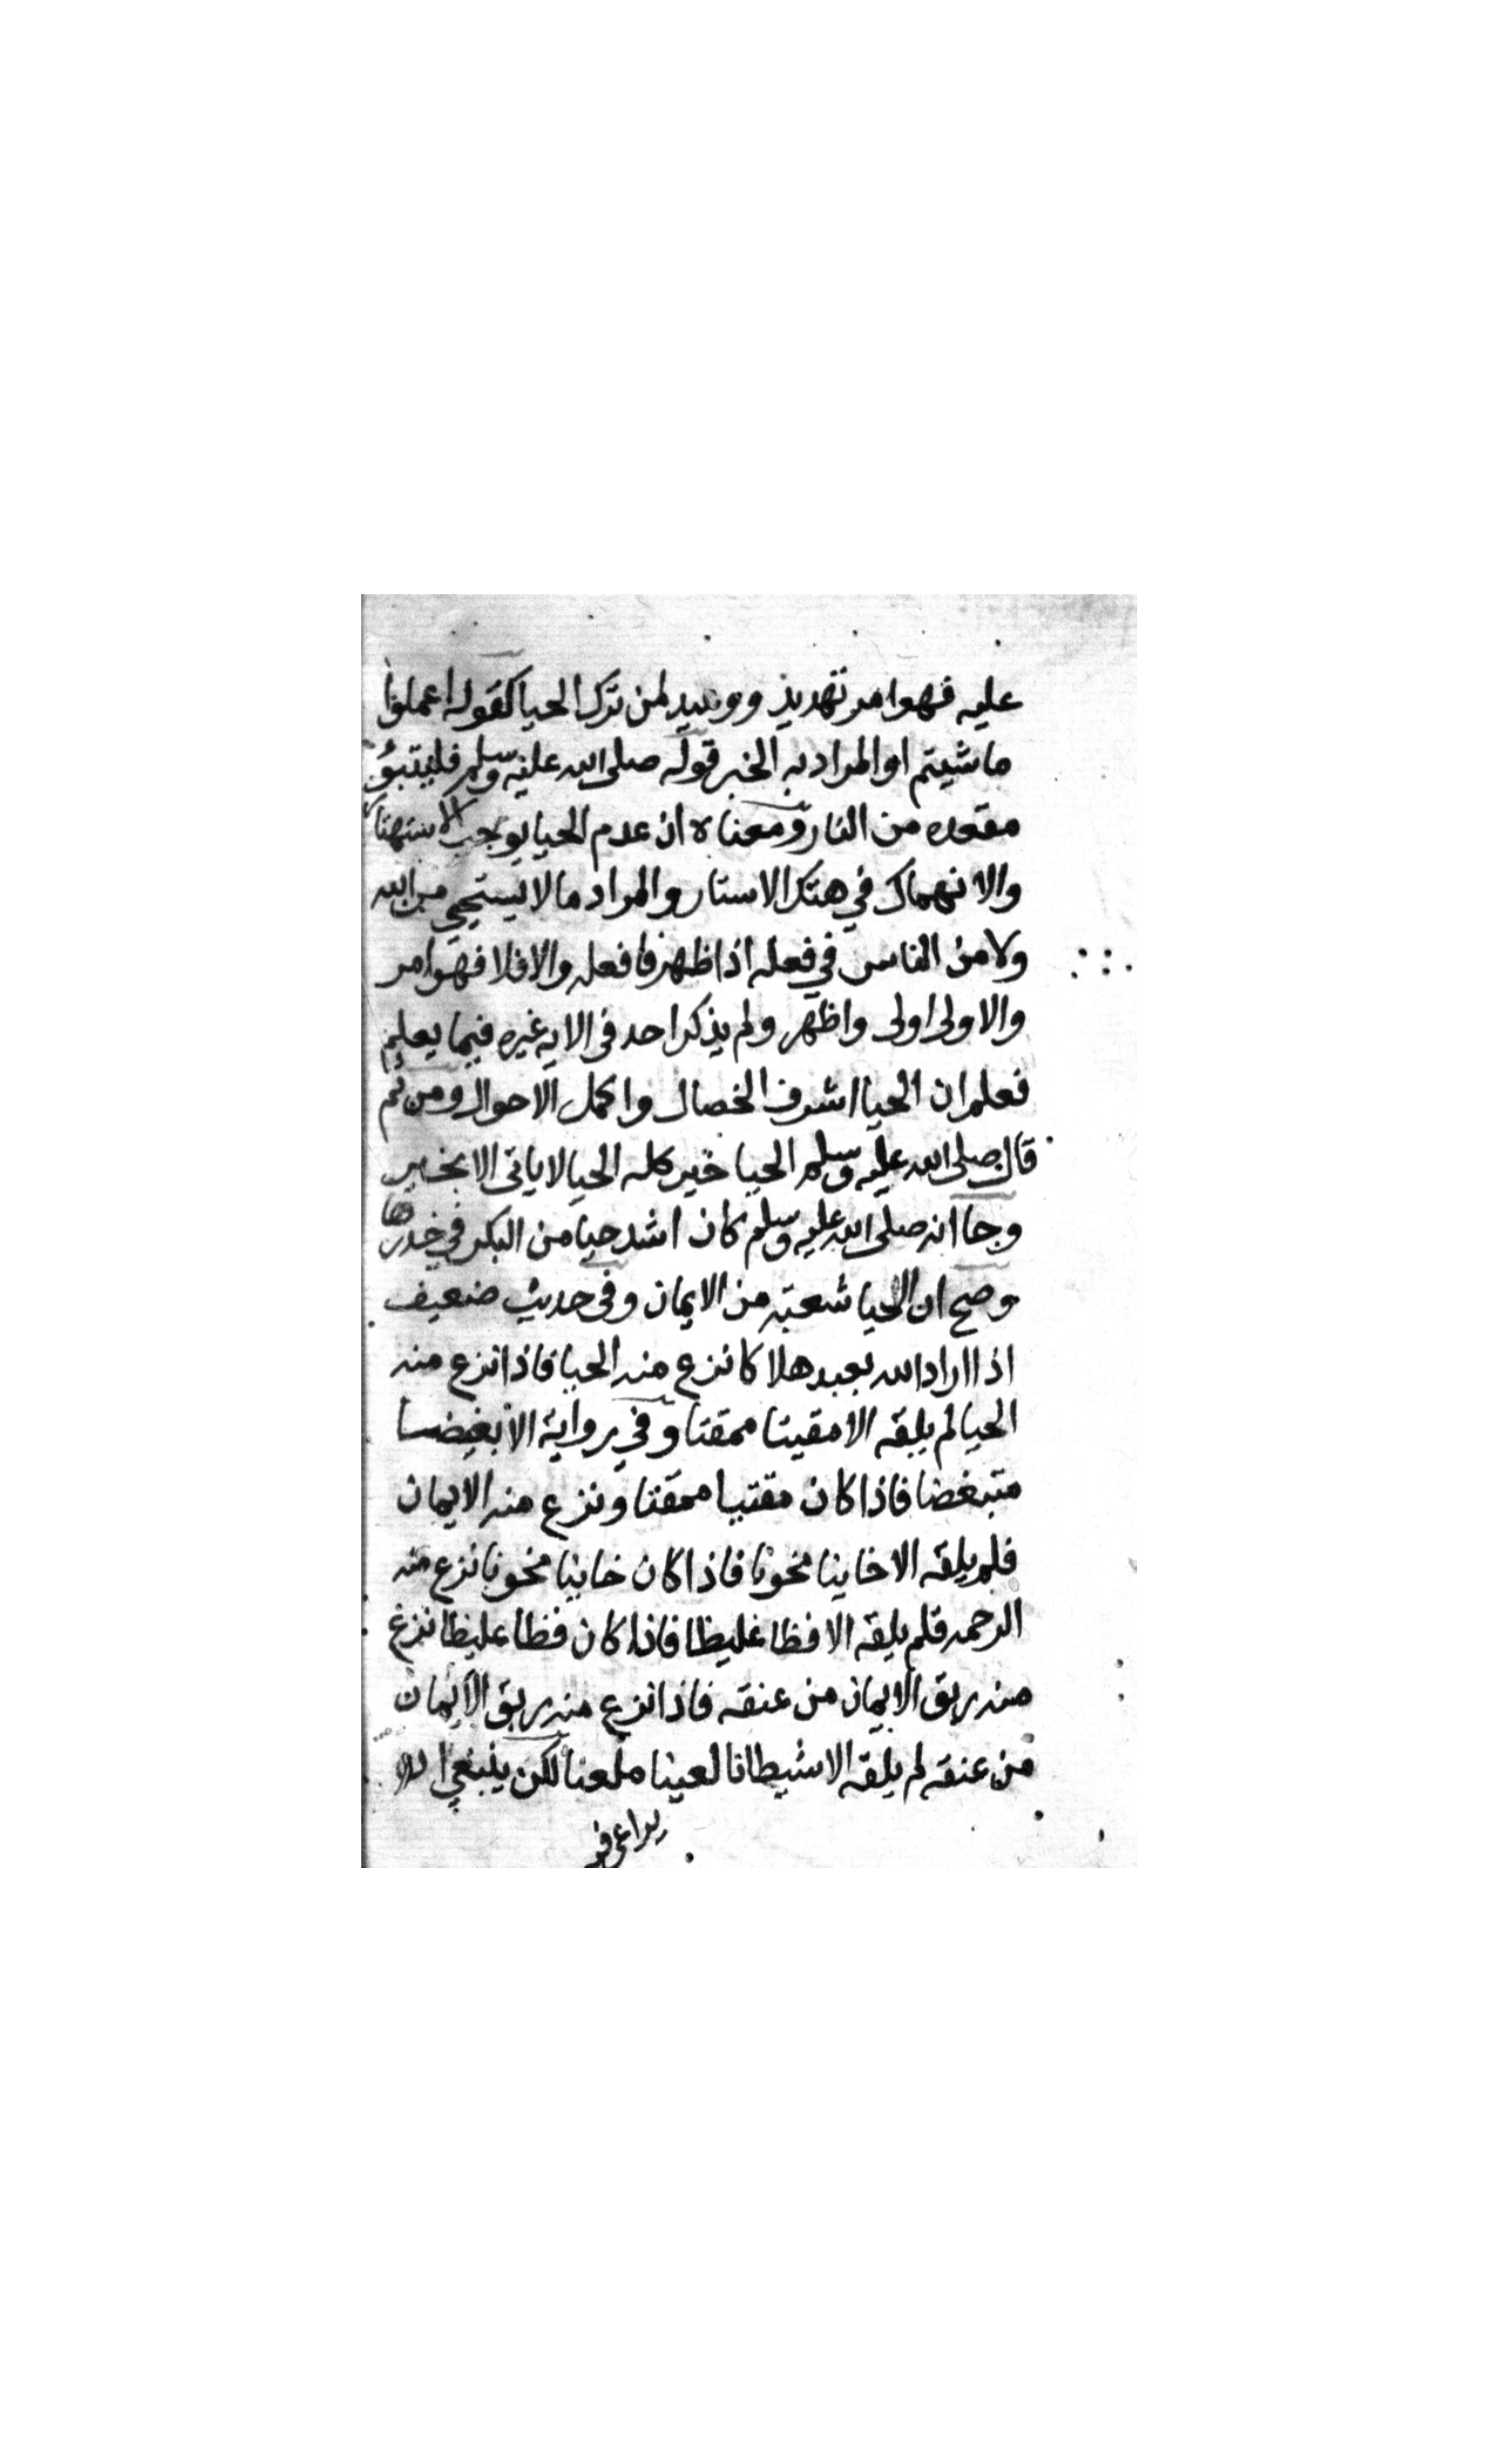 عليه فهو امر تهديد ووعيد لمن ترك الحيا كقوله اعملوا
ما شيتم او المراد به الخبر قوله صلى الله عليه وسلم فليتبؤ
مقعده من النار ومعناه ان عدم الحيا يوجب الاستهتا
والانهماك في هتك الاستار والمراد ما لا يستحي من الله
ولا من الناس في فعله اذا ظهر فافعله والا فلا فهو امر
والاولى اولى واظهر ولم يذكر احد في الايه غيره فيما يعلم
فعلم ان الحيا اشرف الخصال واكمل الاحوال ومن ثم
قال صلى الله عليه وسلم الحيا خير كله الحيا لا ياتى الا بخير
وجا انه صلى الله عليه وسلم كان اشد حيا من البكر في خدرها
وصح ان الحيا شعبة من الايمان وفي حديث ضعيف
اذا اراد الله بعبد هلاكا نزع منه الحيا فاذا نزع منه
الحيا لم يلقه الا مقيتا ممقتا وفي رواية الا بغيضا
متبغضا فاذا كان مقتيا ممقتا ونزع منه الايمان
فلم يلقه الا خاينا مخونا فاذا كان خاينا مخونا نزع منه
الرحمه فلم يلقه الا فظا غليظا فاذا كان فظا غليظا نزع
منه ربق الايمان من عنقه فاذا نزع منه ربق الايمان
من عنقه لم يلقه الا شيطانا لعينا ملعنا لكن ينبغي ان
يراعى في